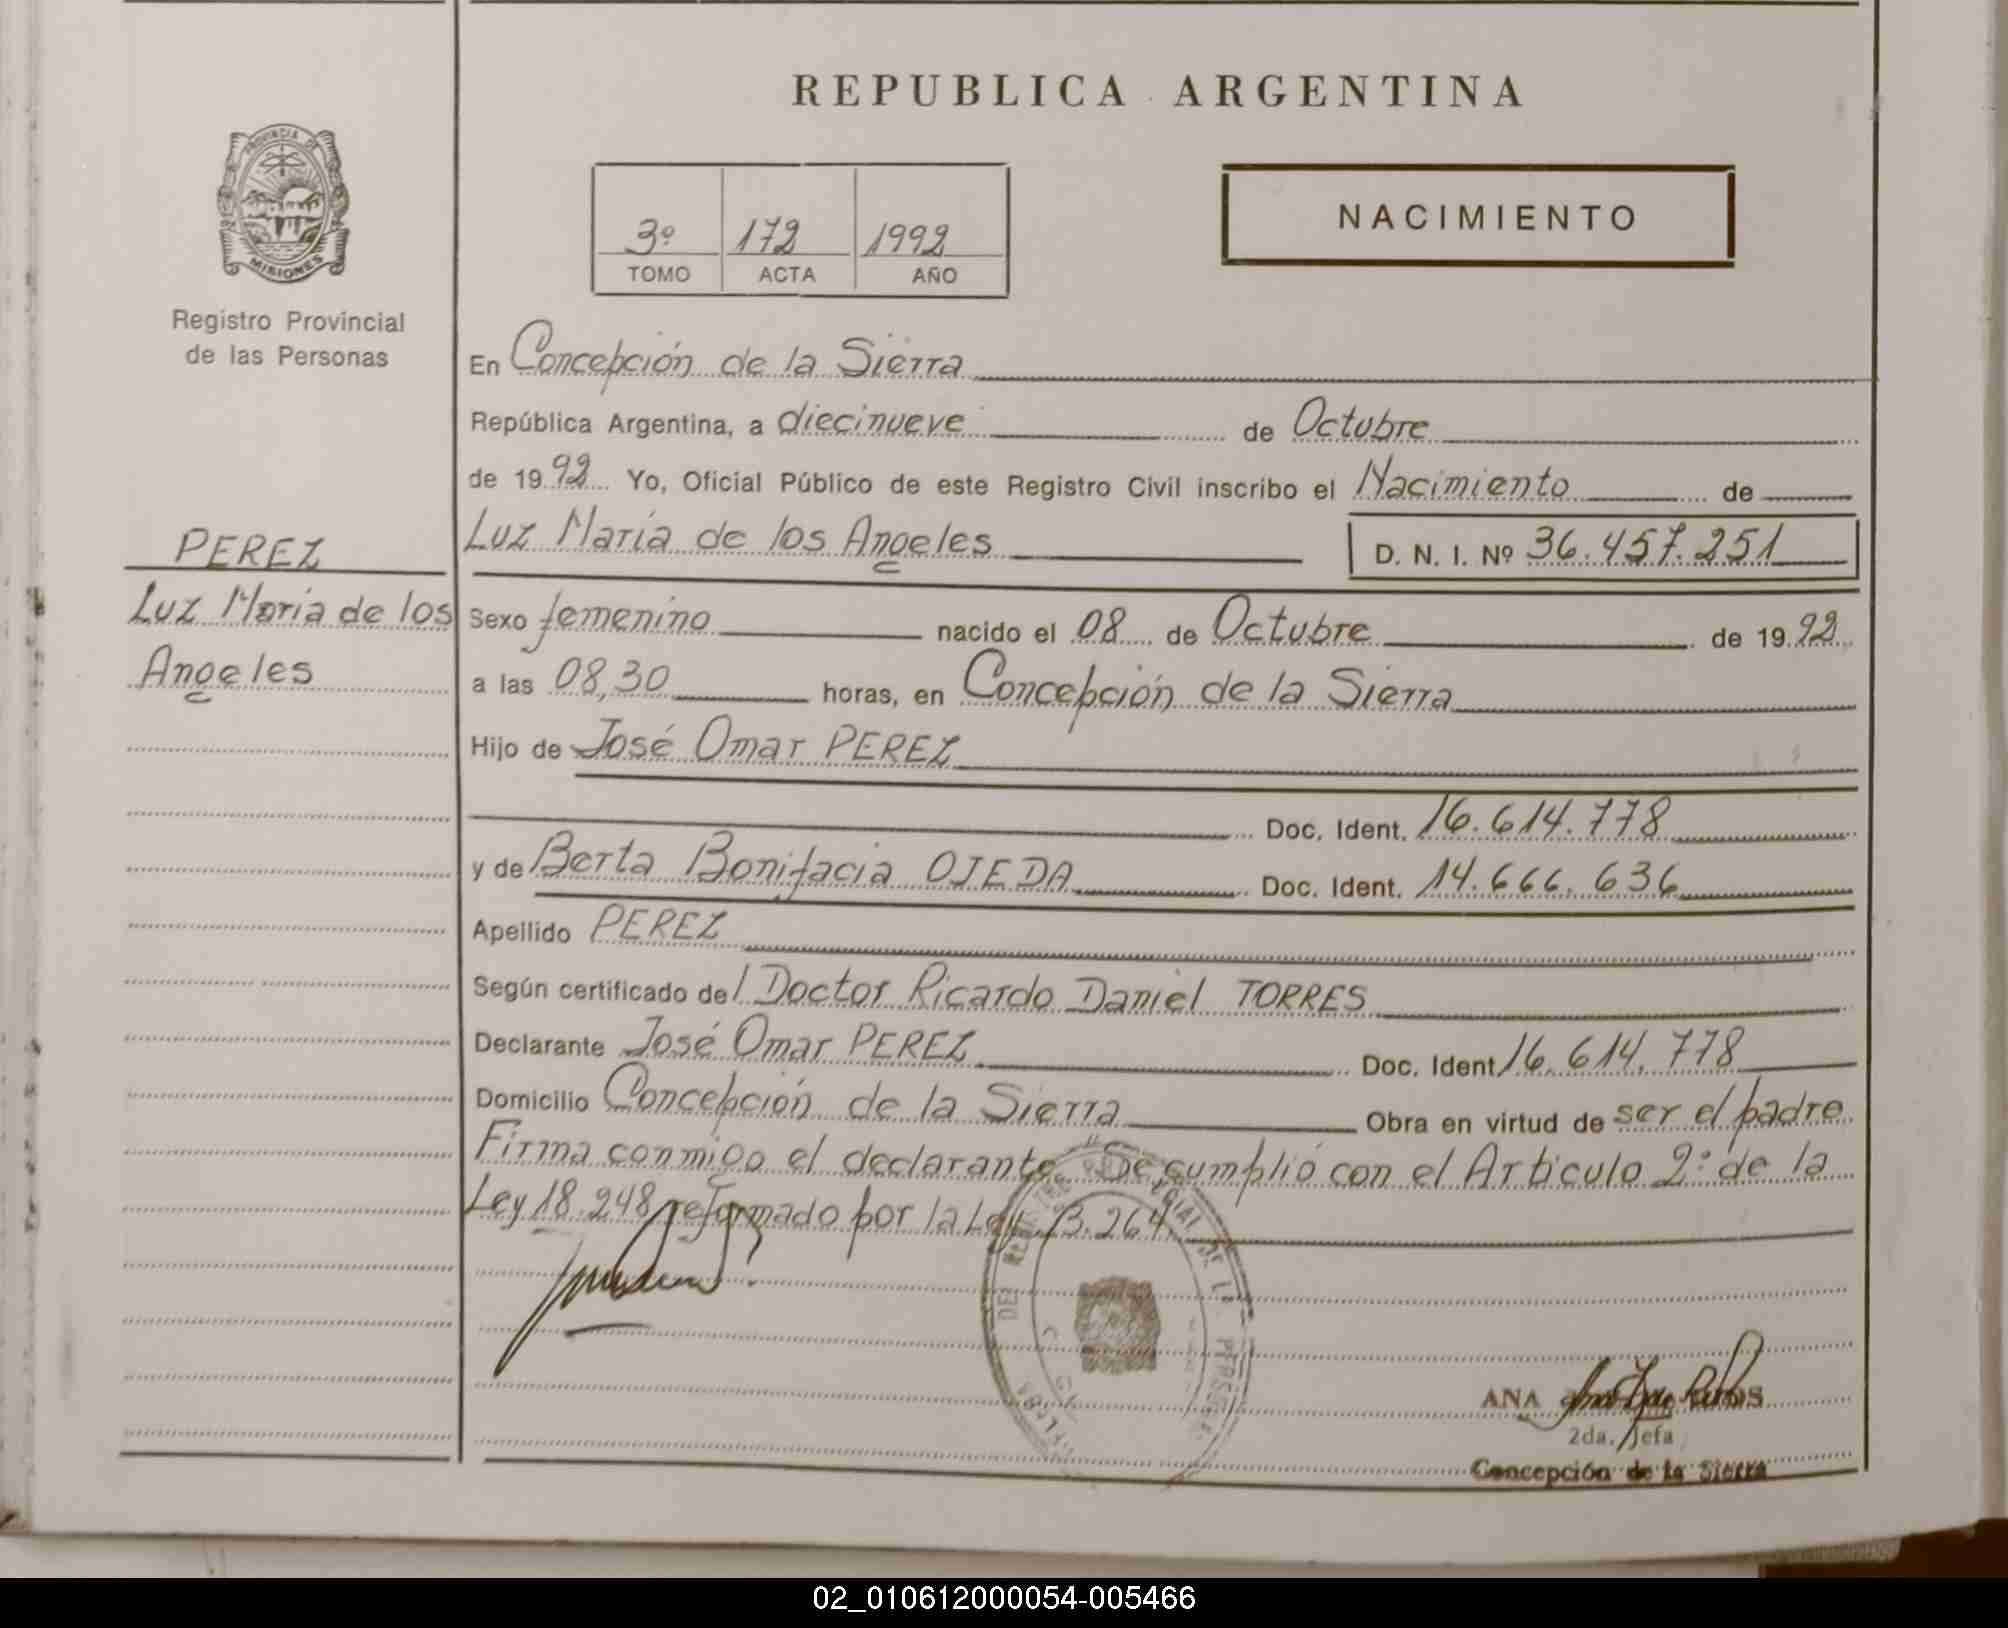 REPUBLICA ARGENTINA
PROVINCIA DE
MISIONES
Registro Provincial
de las Personas
3º 172 1992
TOMO ACTA AÑO
NACIMIENTO
En Concepción de la Sierra
República Argentina, a diecinueve de Octubre
de 1992 Yo, Oficial Público de este Registro Civil inscribo el Nacimiento de
Luz María de los Angeles D. N. I. Nº 36.457.251
PEREZ
Luz María de los
Angeles
Sexo femenino nacido el 08 de Octubre de 1992
a las 08,30 horas, en Concepción de la Sierra
Hijo de José Omar PEREZ
Doc. Ident. 16.614.778
y de Berta Bonifacia OJEDA Doc. Ident. 14.666.636
Apellido PEREZ
Según certificado del Doctor Ricardo Daniel TORRES
Declarante José Omar PEREZ Doc. Ident 16.614.778
Domicilio Concepción de la Sierra Obra en virtud de ser el padre
Firma conmigo el declarante. Se cumplió con el Artículo 2º de la
Ley 18.248 reformado por la Ley 23.264
ANA
2da. Jefa
Concepción de la Sierra
02_010612000054-005466